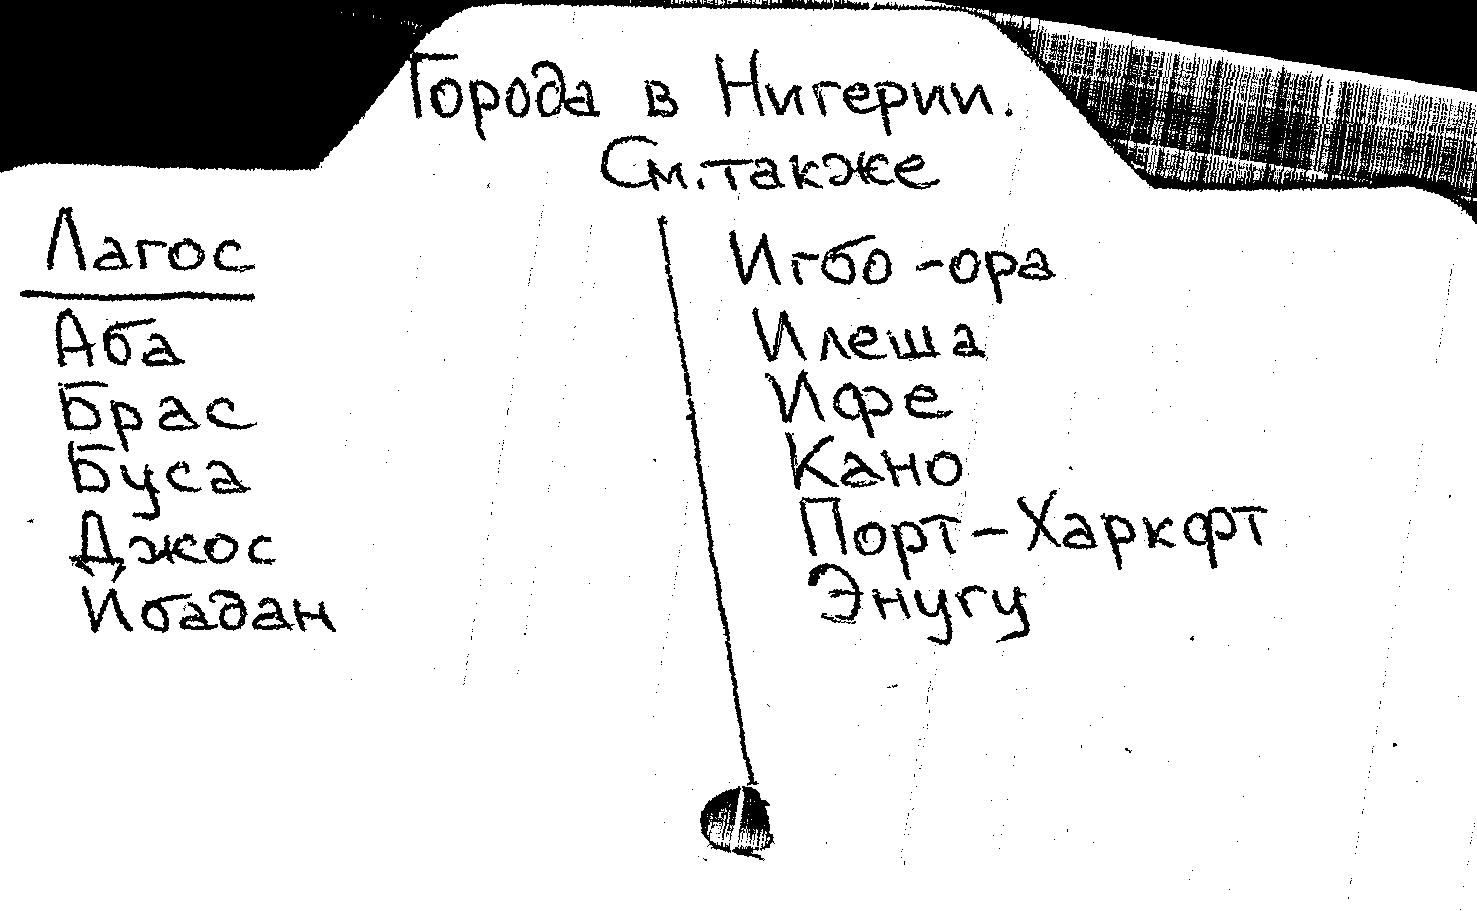 Города в Нигерии.
См. также
Лагос
Аба
Брас
Буса
Джос
Ибадан
Игбо-ора
Илеша
Ифе
Кано
Порт-Харкфт
Энугу